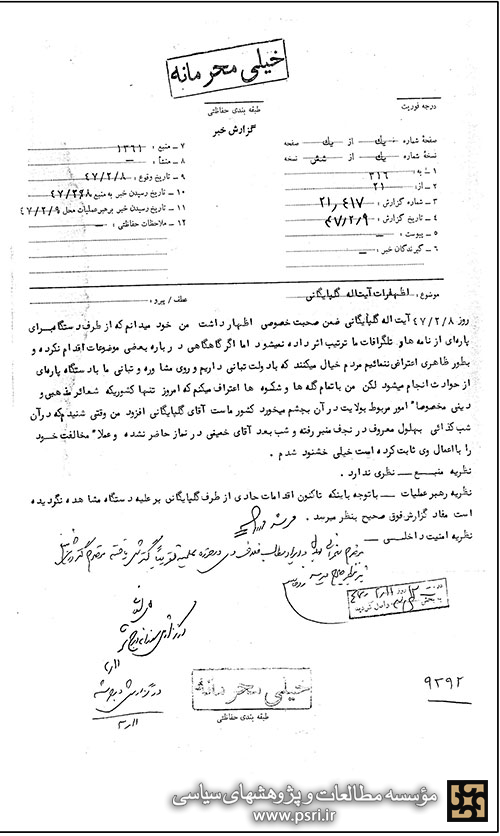 خیلی محرمانه
درجه فوریت
طبقه بندی حفاظتی
گزارش خبر
صفحهٔ شماره یک از یک صفحه
نسخهٔ شماره یک از شش نسخه
۱ ـ به : ۳۱۶
۲ ـ از : ۲۱
۳ ـ شماره گزارش : ۲۱٫۴۱۷
۴ ـ تاریخ گزارش : ۴۷/۲/۹
۵ ـ پیوست : ـ
۶ ـ گیرندگان خبر : ـ
۷ ـ منبع : ۱۳۶۱
۸ ـ منشأ : ـ
۹ ـ تاریخ وقوع : ۴۷/۲/۸
۱۰ ـ تاریخ رسیدن خبر به منبع ۴۷/۲/۸
۱۱ ـ تاریخ رسیدن خبر برهبر عملیات محل ۴۷/۲/۹
۱۲ ـ ملاحظات حفاظتی : ـ
موضوع : اظهارات آیت اله گلپایگانی عطف / پیرو :
روز ۴۷/۲/۸ آیت اله گلپایگانی ضمن صحبت خصوصی اظهار داشت من خود میدانم که از طرف دستگاه برای
پاره‌ای از نامه ها و تلگرافات ما ترتیب اثر داده نمیشود اما اگر گاهگاهی درباره بعضی موضوعات اقدام نکرده و
بطور ظاهری اعتراضی ننمائیم مردم خیال میکنند که با دولت تبانی داریم و روی مشاوره و تبانی ما با دستگاه پاره‌ای
از حوادث انجام میشود لکن من با تمام گله ها و شکوه ها اعتراف میکنم که امروز تنها کشوریکه شعائر مذهبی و
دینی مخصوصا" امور مربوط بولایت در آن بچشم میخورد کشور ماست آقای گلپایگانی افزود من وقتی شنیدم که در آن
شب کذائی بهلول معروف در نجف منبر رفته و شب بعد آقای خمینی در نماز حاضر نشده و عملا" مخالفت خود
را با اعمال وی ثابت کرده است خیلی خشنود شدم .
نظریه منبع ـ نظری ندارد .
نظریه رهبر عملیات ـ با توجه باینکه تاکنون اقدامات حادی از طرف گلپایگانی بر علیه دستگاه مشاهده نگردیده
است مفاد گزارش فوق صحیح بنظر میرسد .
نظریه امنیت داخلی ـ
خیلی محرمانه
طبقه بندی حفاظتی
۹۲۹۲
مؤسسه مطالعات و پژوهشهای سیاسی
www.psri.ir